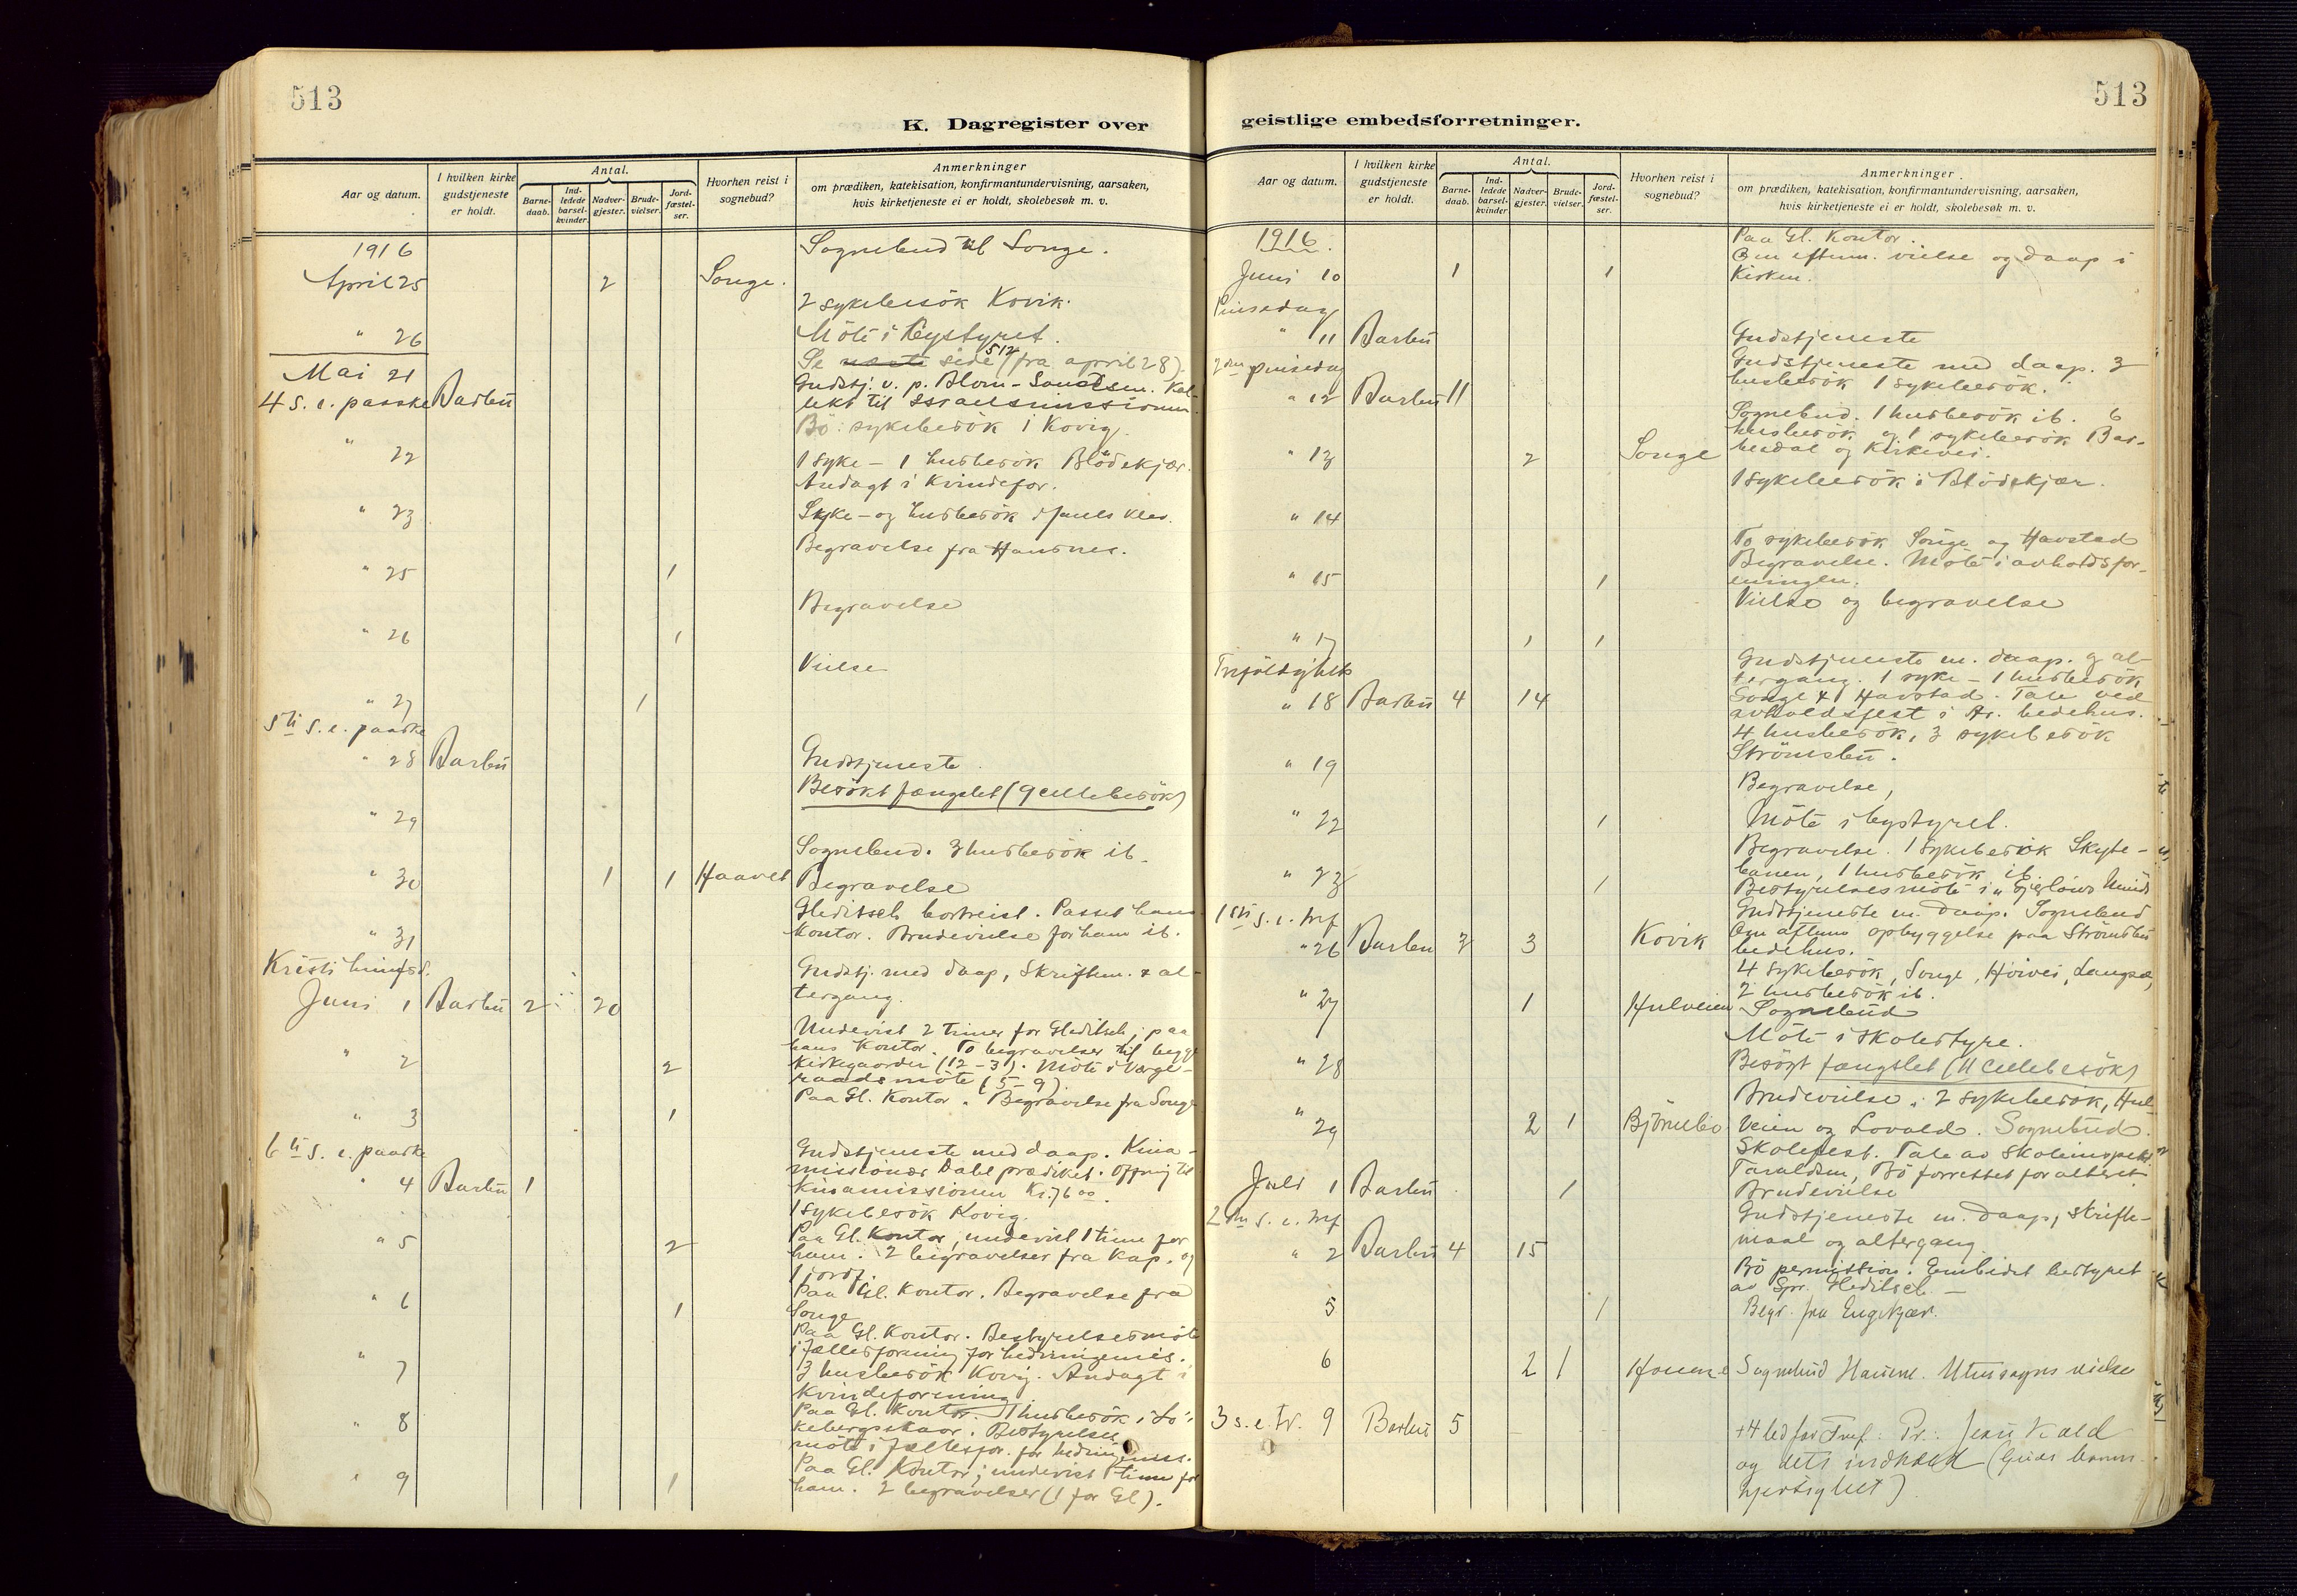 513
K. Dagregister over
Aar og datum.
I hvilken kirke gudstjeneste er holdt.
Antal.
Barne-daab.
Ind-ledede barsel-kvinder
Nadver-gjester.
Brude-vielser.
Jord-fæstel-ser.
Hvorhen reist i sognebud?
Anmerkninger
om prædiken, katekisation, konfirmantundervisning, aarsaken,
hvis kirketjeneste ei er holdt, skolebesøk m. v.
1916
Sognebud til Songe.
April 25 2 Songe.
2 sykebesök Kovik.
" 26
Möte i bystyret.
Se næste side 512 (fra april 28).
Mai 21
Gudstj. v. p. Blom-Sandsen. Kol-
4 s. e. paaske Barbu
lekt til Israelsmissionen.
Bö: sykebesök i Kovig.
" 22
1 syke - 1 husbesök Blödekjær.
Andagt i Kvindefor.
" 23
Syke - og husbesök i Klev.
Begravelse fra
" 25 1
Begravelse
" 26 1
Vielse
" 27 1
5te s. e. paaske
" 28 Barbu
Gudstjeneste.
Besökt fængslet (9 cellebesök)
" 29
Sognebud. 3 husbesök ib.
" 30 1 1 Haavet
Begravelse
Gleditsch bortreist. Passet hans
" 31
Kontor. Brudevielse for ham ib.
Kristi himfsd.
Gudstj. med daap, skriftem. & al-
Juni 1 Barbu 2 20
tergang.
Undervist 2 timer for Gleditsch; paa
" 2 2
hans Kontor. To begravelser til begge
kirkegaarder (12-3). Möte i Værge-
raadsmöte (5-9).
" 3 1
Paa Gl. Kontor. Begravelse fra Songe
6te s. e. paaske
Gudstjeneste med daap. Kina-
missionær Dahl prædiket. Offring til
" 4 Barbu 1
Kinamissionen Kr. 76 00.
1 sykebesök Kovig.
" 5 2
Paa Gl. Kontor, undervist 1 time for
ham. 2 begravelser fra Kap. og
1 jordf.
" 6 1
Paa Gl. Kontor. Begravelse fra
Songe
Paa Gl. Kontor. Bestyrelsesmöte
i fællesforening for hedningemis.
" 7
3 husbesök Kovig. Andagt i
Kvindeforening
" 8
Paa Gl. Kontor. 1 husbesök i
Bestyrelses
möte i fællesfor. for hedningemis.
" 9 1
Paa Gl. Kontor; undervist 1 time for
ham. 2 begravelser (1 for Gl).
513
geistlige embedsforretninger.
Aar og datum.
I hvilken kirke gudstjeneste er holdt.
Antal.
Barne-daab.
Ind-ledede barsel-kvinder
Nadver-gjester.
Brude-vielser.
Jord-fæstel-ser.
Hvorhen reist i sognebud?
Anmerkninger.
om prædiken, katekisation, konfirmantundervisning, aarsaken,
hvis kirketjeneste ei er holdt, skolebesøk m. v.
1916.
Paa Gl. Kontor.
Om efterm. vielse og daap i
Juni 10 1 1
Kirken.
Pinsedag
" 11 Barbu
Gudstjeneste
2den pinsedag
Gudstjeneste med daap. 3
" 12 Barbu 11
husbesök 1 sykebesök.
Sognebud. 1 husbesök ib. 6
husbesök og 1 sykebesök Bar-
" 13 2 Songe
budal og Kirkevei.
1 sykebesök i Blödekjær.
" 14
To sykebesök Songe og Havstad
Begravelse. Möte i avholdsfor-
" 15 1
eningen.
Vielse og begravelse
" 17 1 1
Trefoldigheds
Gudstjeneste m. daap. og al-
tergang. 1 syke - 1 husbesök
" 18 Barbu 4 14
Songe & 1 Havstad. Tale ved
avholdsfest i Ar. bedehus.
4 husbesök, 3 sykebesök
" 19
Strömsbu.
Begravelse,
" 22 1
Möte i bystyret.
Begravelse. 1 sykebesök Skyte-
" 23 1
banen, 1 husbesök ib.
Bestyrelsesmöte i Minde
1ste s. e. tref
Gudstjeneste m. daap. Sognebud
" 26 Barbu 3 3 Kovik
Om aftenen opbyggelse paa Strömsbu
bedehus.
4 sykebesök, Songe, Höivei, Langsæ,
2 husbesök ib.
" 27 1 Hulveien
Sognebud
Möte i skolestyre.
" 28
Besögt fængslet (11 cellebesök)
Brudevielse. 2 sykebesök, Hul-
" 29 2 1 Björnebo
veien og Lovold. Sognebud.
Skolefest. Tale av skoleinspekt.
Taraldsen, Bö forrettet for alteret.
Juli 1 Barbu 1
Brudevielse
2den s. e. tref
Gudstjeneste m. daap, skrifte-
" 2 Barbu 4 15
maal og altergang
Bö permission. Embedet bestyret
av Spr. Gleditsch. -
5 1
Begr. fra Engekjær.
6 2 1
Sognebud Utensogns vielse
3 s. e. tr. 9 Barbu 5
Pr.: Jesu Kald
og dets indhold (Guds barm-
hjertighet).